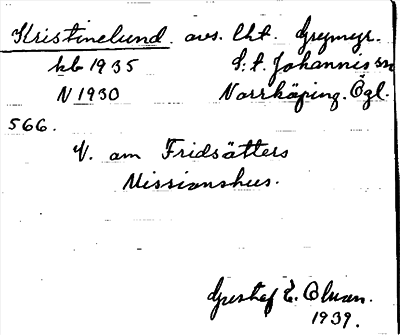 Kristinelund. avs. lht. Grymyr.
kb 1935 S:t. Johannis sn
N 1930 Norrköping. Ögl.
566.
V. om Fridsätters
Missionshus.
Gustaf E. Olson.
1939.